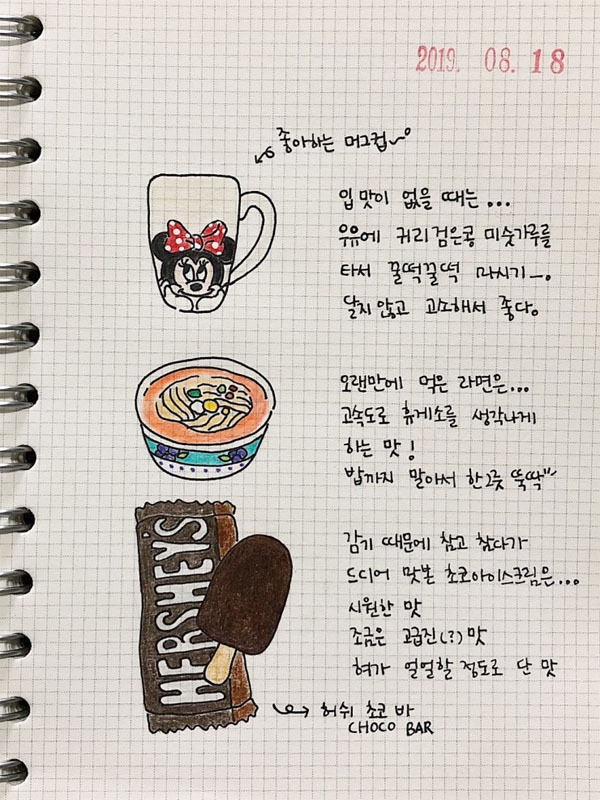 2019. 08. 18
좋아하는 머그컵~
입맛이 없을 때는...
우유에 귀리검은콩 미숫가루를
타서 꿀떡꿀떡 마시기—.
달지않고 고소해서 좋다.
오랜만에 먹은 라면은...
고속도로 휴게소를 생각나게
하는 맛!
밥까지 말아서 한그릇 뚝딱"
감기 때문에 참고 참다가
드디어 맛본 초코아이스크림은...
시원한 맛
조금은 고급진(?)맛
혀가 얼얼할 정도로 단 맛
HERSHEY'S
허쉬 쵸코 바
CHOCO BAR